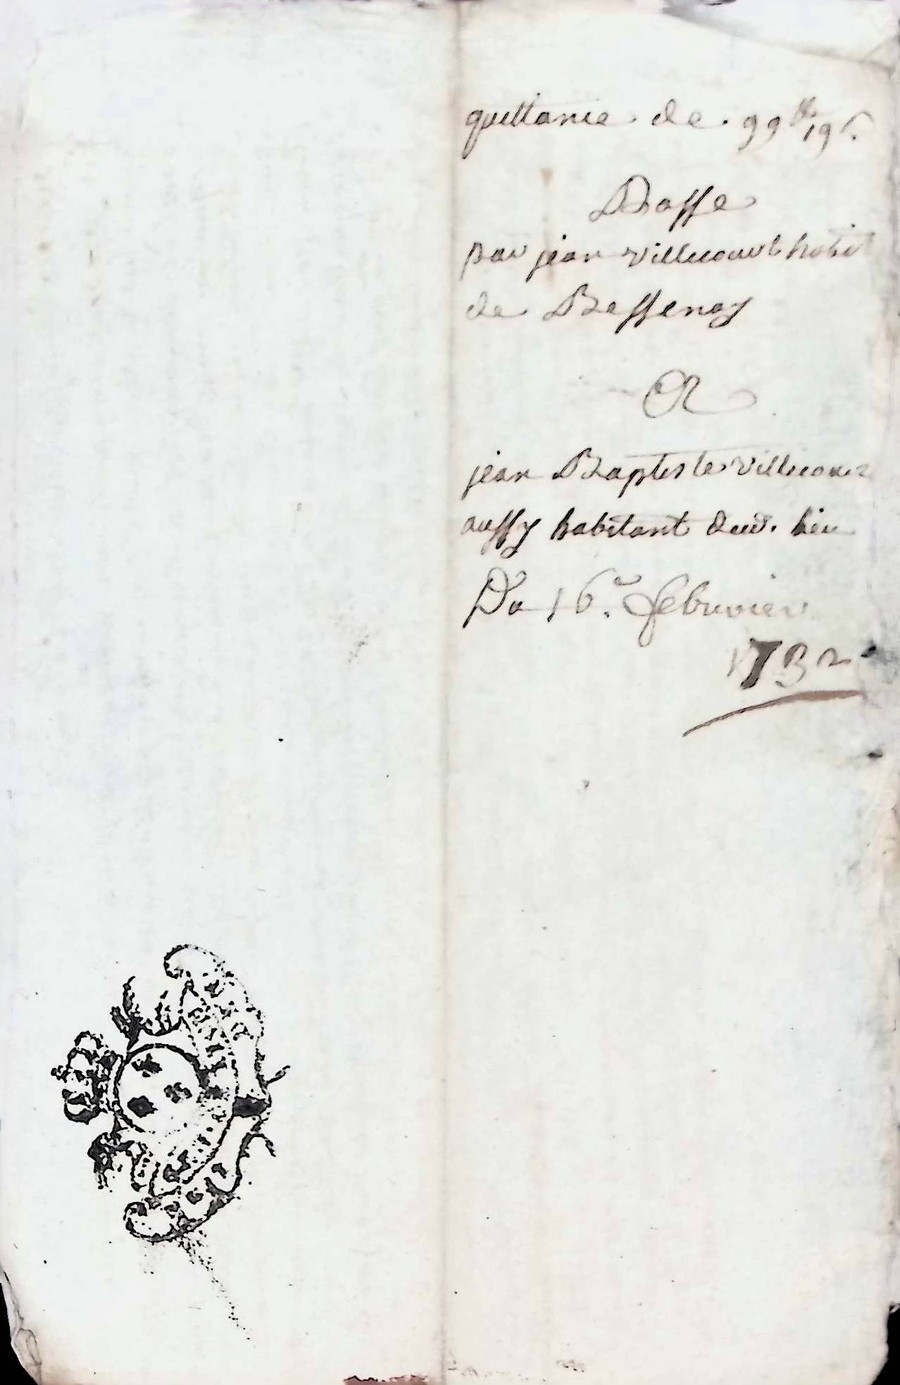 quittance de 99tt 19s.
Passe
par jean Villecourt habit
de Bessenay
A
jean Baptiste Villecour
aussy habitant dud. lieu
Du 16e. febvrier
1732